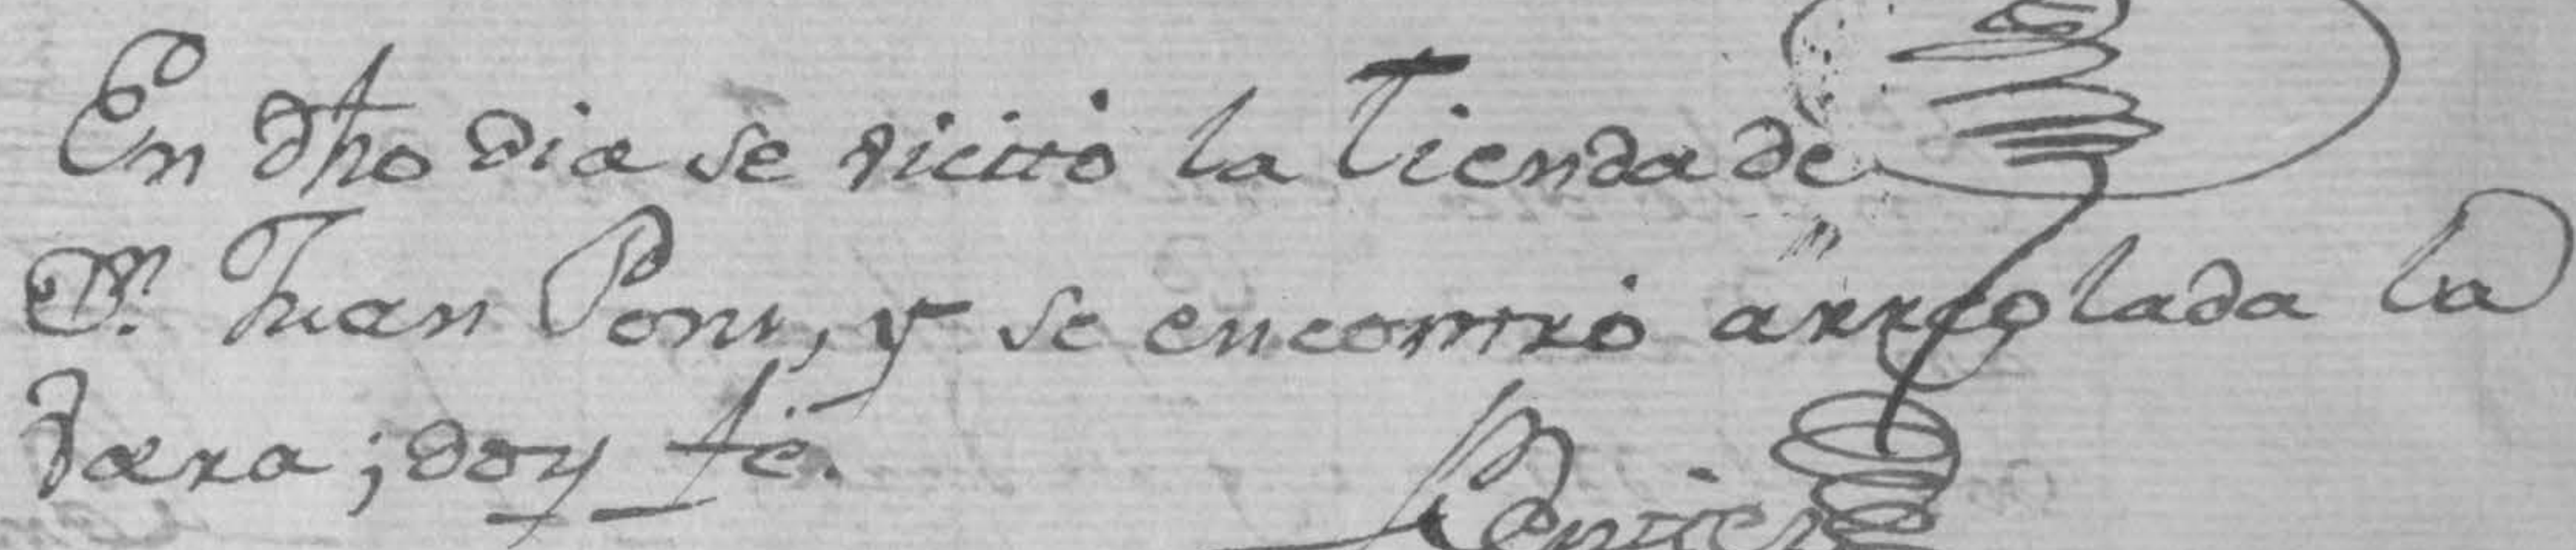 En dho dia se vicitó la Tienda de
Dn. Juan Pons, y se encontró arreglada la
Vara; doy fé.